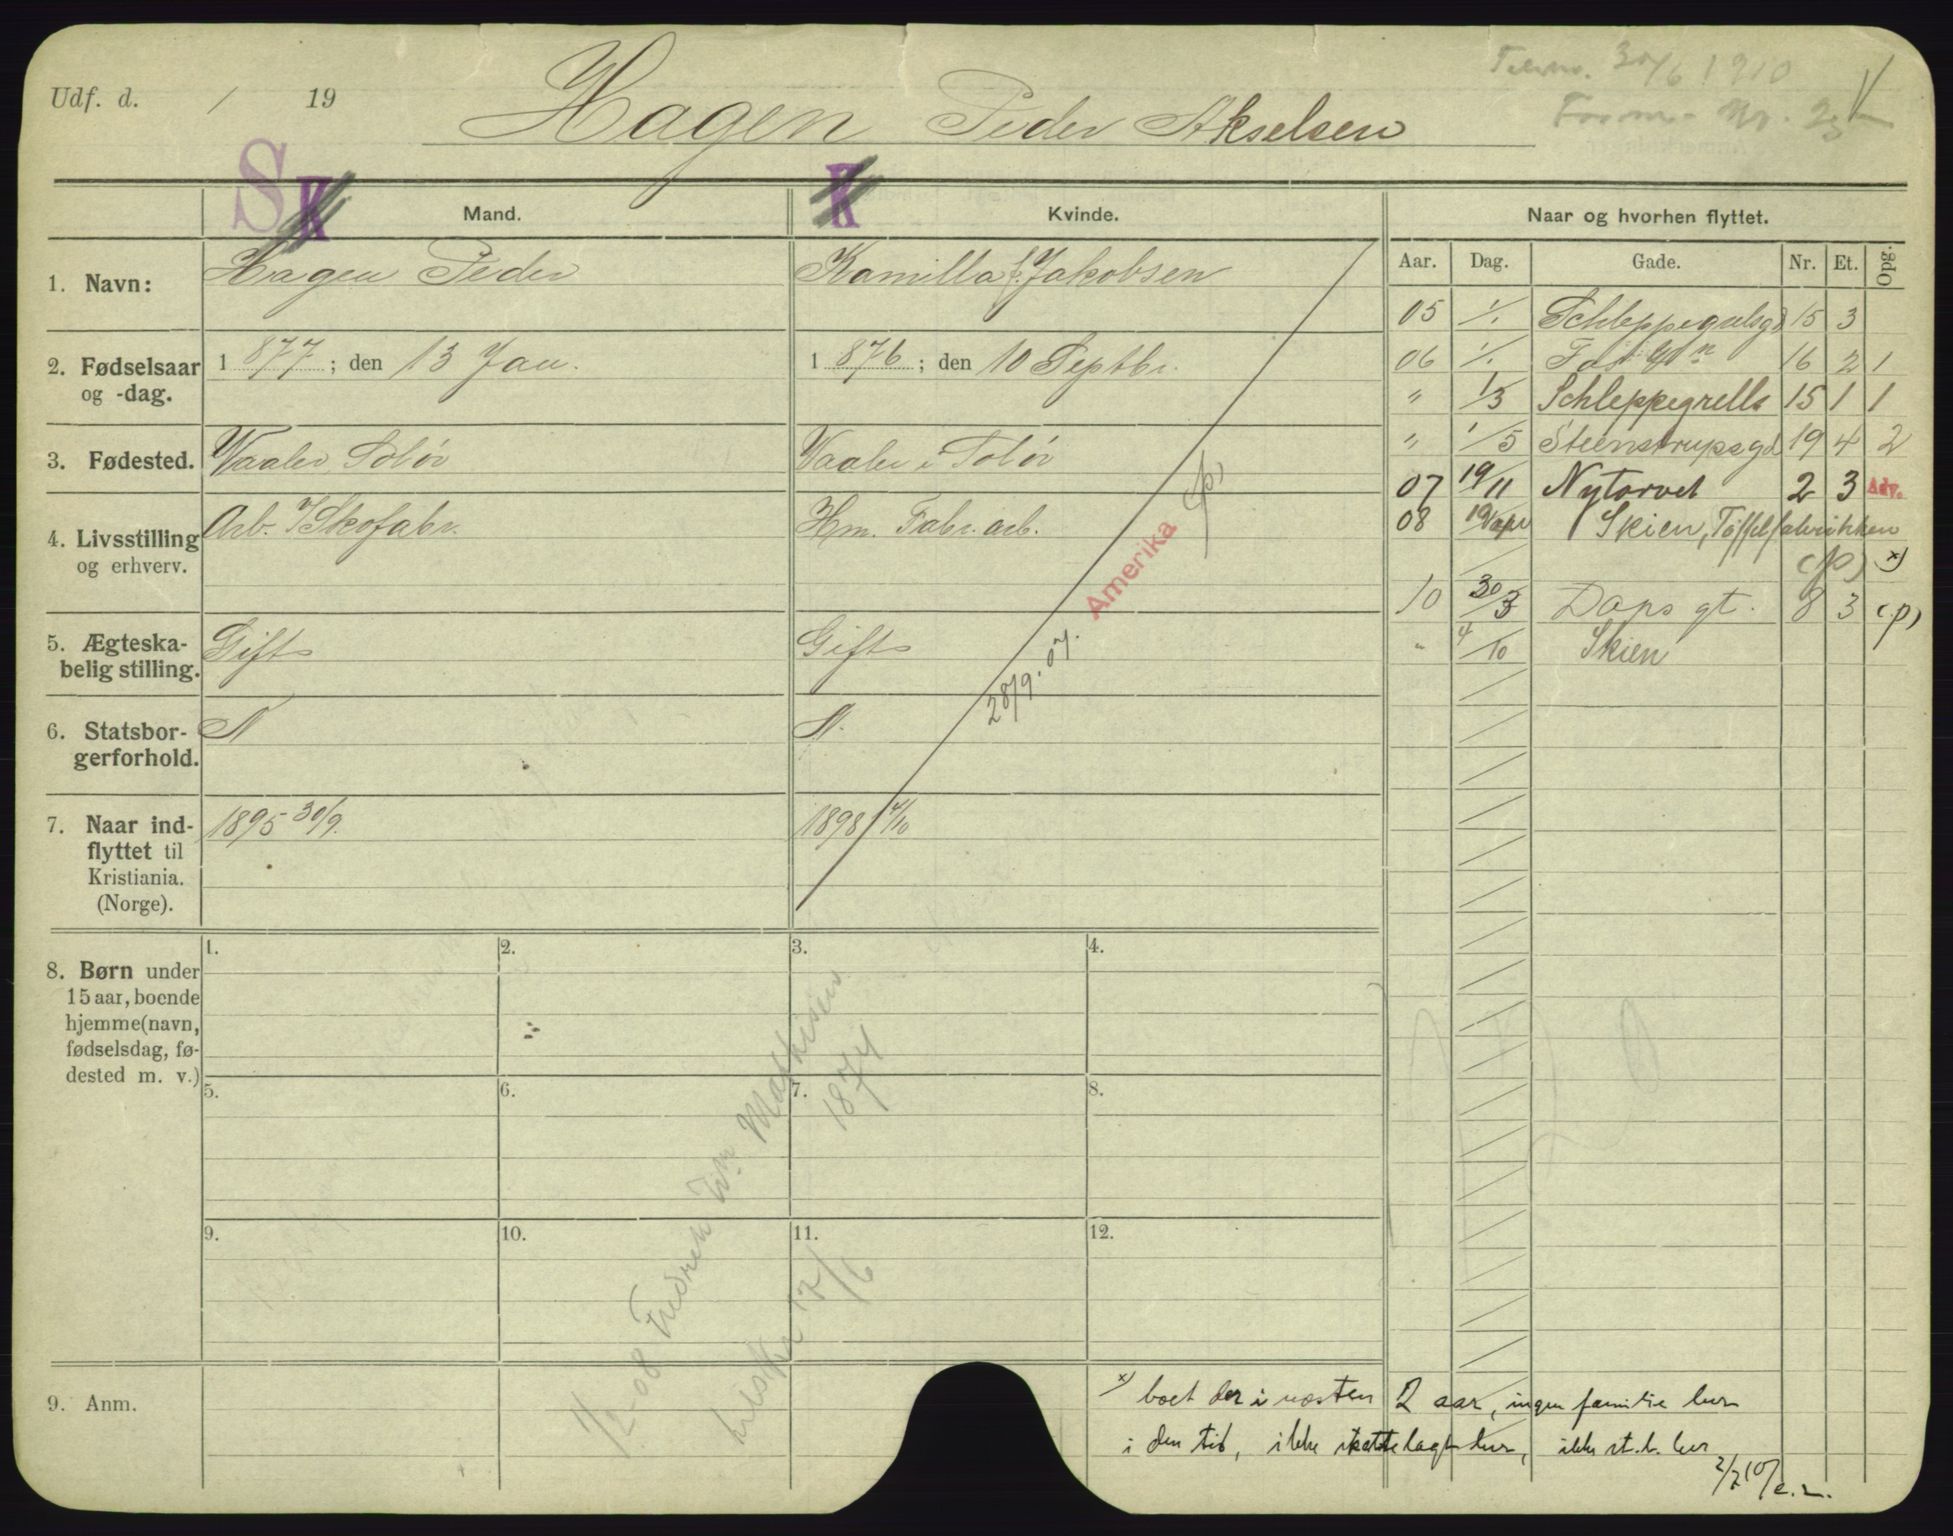 Udf. d. / 19
Hagen Peder Akselsen
30/6 1910
S K K
Mand. Kvinde. Naar og hvorhen flyttet.
Aar. Dag. Gade. Nr. Et. Opg.
1. Navn: Hagen Peder Kamilla f. Jakobsen
2. Fødselsaar og -dag. 1 877 ; den 13 Jan. 1 876 ; den 10 Septbr.
3. Fødested. Vaaler Solør Vaaler i Solør
4. Livsstilling og erhverv. Arb. i Skofabr. Hm. Fabr. arb.
5. Ægteska-
belig stilling. Gift Gift
6. Statsbor-
gerforhold. N N.
7. Naar ind-
flyttet til
Kristiania.
(Norge). 1895 30/9. 1898 4/10
28/9. 07. Amerika (p)
05 1/1 Schleppegrelsgd 15 3
06 1/1 16 2 1
" 1/3 Schleppegrells 15 1 1
" 1/5 Steenstrupsgd 19 4 2
07 19/11 Nytorvet 2 3 Adv.
08 Skien, Tøffelfabrikken
(p) x)
10 30/3 Daps gt. 8 3 (p)
" 4/10 Skien
8. Børn under
15 aar, boende
hjemme (navn,
fødselsdag, fø-
dested m. v.)
1. 2. 3. 4.
5. 6. 7. 8.
9. 10. 11. 12.
Fredrik Wm. Mathisen
1874
9. Anm.
x) boet der i næsten 2 aar, ingen familie her
i den tid, ikke skattelagt her, ikke st. b. her